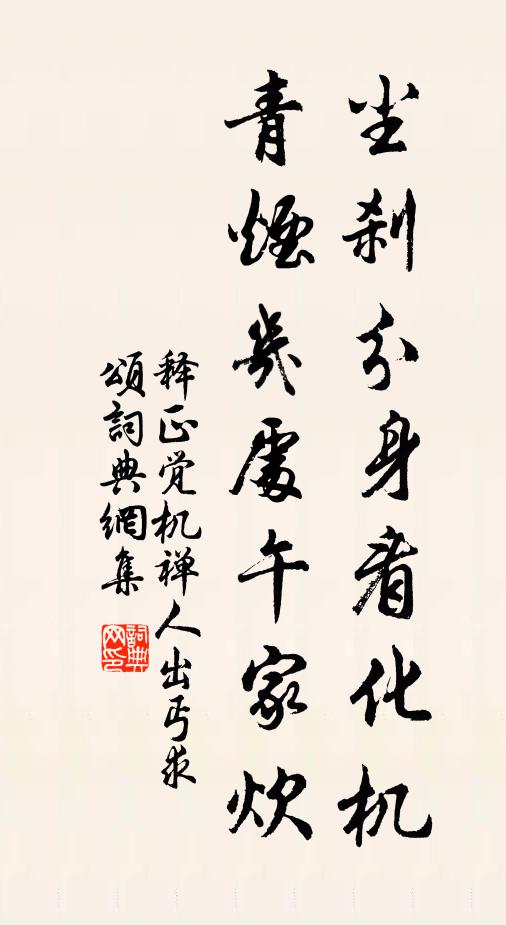 尘刹分身看化机
青烟几處午家炊
释正觉机禅人出丐求
頌詞典網集
詞典网印